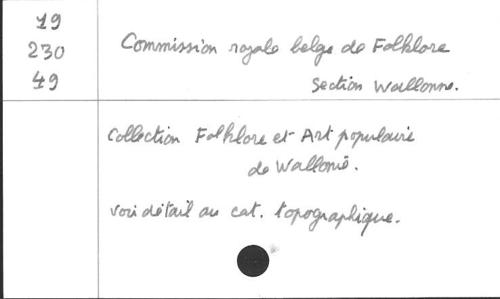 19
230
49
Commission royale belge de Folklore
Section Wallonne.
Collection Folklore et Art populaire
de Wallonie.
voir détail au cat. topographique.